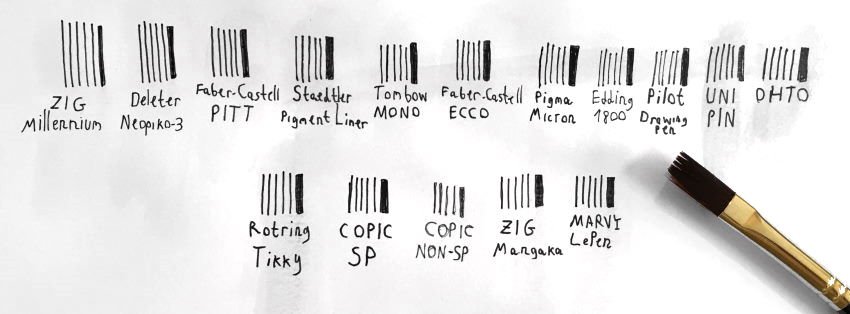 ZIG
Millennium
Deleter
Neopiko-3
Faber-Castell
PITT
Staedtler
Pigment Liner
Tombow
MONO
Faber-Castell
ECCO
Pigma
Micron
Edding
1800
Pilot
Drawing
Pen
UNI
PIN
OHTO
Rotring
Tikky
COPIC
SP
COPIC
NON-SP
ZIG
Mangaka
MARVY
LePen